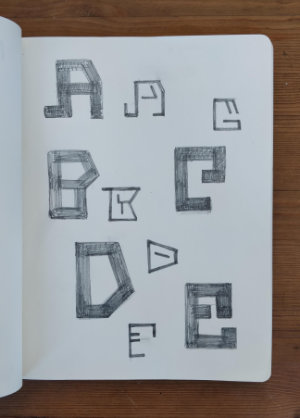 A A C
B B C
D D
E E